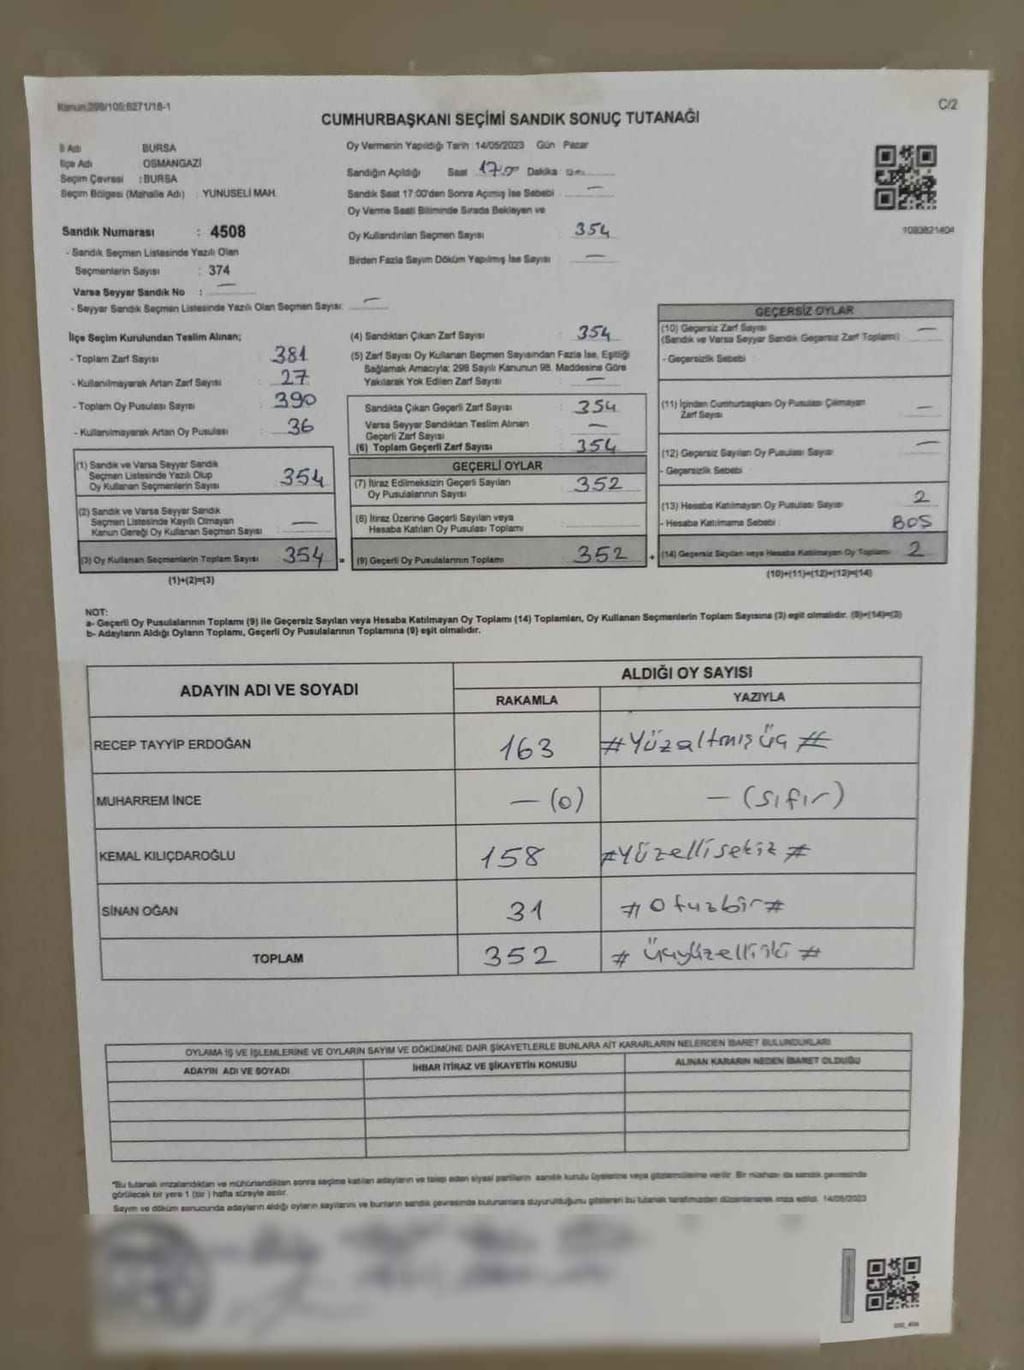 Kanun:298/105;6271/18-1
C/2
CUMHURBAŞKANI SEÇİMİ SANDIK SONUÇ TUTANAĞI
İl Adı BURSA
İlçe Adı OSMANGAZİ
Seçim Çevresi : BURSA
Seçim Bölgesi (Mahalle Adı) : YUNUSELİ MAH.
Sandık Numarası : 4508
- Sandık Seçmen Listesinde Yazılı Olan
Seçmenlerin Sayısı : 374
Varsa Seyyar Sandık No : —
- Seyyar Sandık Seçmen Listesinde Yazılı Olan Seçmen Sayısı: —
Oy Vermenin Yapıldığı Tarih :14/05/2023 Gün Pazar
Sandığın Açıldığı Saat 17.00 Dakika
Sandık Saat 17:00'den Sonra Açılmış İse Sebebi —
Oy Verme Saati Bitiminde Sırada Bekleyen ve
Oy Kullandırılan Seçmen Sayısı 354
Birden Fazla Sayım Döküm Yapılmış İse Sayısı —
1083821404
İlçe Seçim Kurulundan Teslim Alınan;
- Toplam Zarf Sayısı : 381
- Kullanılmayarak Artan Zarf Sayısı : 27
- Toplam Oy Pusulası Sayısı : 390
- Kullanılmayarak Artan Oy Pusulası : 36
(1) Sandık ve Varsa Seyyar Sandık
Seçmen Listesinde Yazılı Olup
Oy Kullanan Seçmenlerin Sayısı : 354
(2) Sandık ve Varsa Seyyar Sandık
Seçmen Listesinde Kayıtlı Olmayan
Kanun Gereği Oy Kullanan Seçmen Sayısı —
(3) Oy Kullanan Seçmenlerin Toplam Sayısı 354
(1)+(2)=(3)
(4) Sandıktan Çıkan Zarf Sayısı 354
(5) Zarf Sayısı Oy Kullanan Seçmen Sayısından Fazla İse, Eşitliği
Sağlamak Amacıyla; 298 Sayılı Kanunun 98. Maddesine Göre
Yakılarak Yok Edilen Zarf Sayısı —
Sandıkta Çıkan Geçerli Zarf Sayısı 354
Varsa Seyyar Sandıktan Teslim Alınan
Geçerli Zarf Sayısı —
(6) Toplam Geçerli Zarf Sayısı 354
GEÇERLİ OYLAR
(7) İtiraz Edilmeksizin Geçerli Sayılan
Oy Pusulalarının Sayısı 352
(8) İtiraz Üzerine Geçerli Sayılan veya
Hesaba Katılan Oy Pusulası Toplamı
= (9) Geçerli Oy Pusulalarının Toplamı 352 +
GEÇERSİZ OYLAR
(10) Geçersiz Zarf Sayısı —
(Sandık ve Varsa Seyyar Sandık Geçersiz Zarf Toplamı)
- Geçersizlik Sebebi
(11) İçinden Cumhurbaşkanı Oy Pusulası Çıkmayan
Zarf Sayısı —
(12) Geçersiz Sayılan Oy Pusulası Sayısı —
- Geçersizlik Sebebi
(13) Hesaba Katılmayan Oy Pusulası Sayısı 2
- Hesaba Katılmama Sebebi : BOS
(14) Geçersiz Sayılan veya Hesaba Katılmayan Oy Toplamı 2
(10)+(11)+(12)+(13)=(14)
NOT:
a- Geçerli Oy Pusulalarının Toplamı (9) ile Geçersiz Sayılan veya Hesaba Katılmayan Oy Toplamı (14) Toplamları, Oy Kullanan Seçmenlerin Toplam Sayısına (3) eşit olmalıdır. (9)+(14)=(3)
b- Adayların Aldığı Oyların Toplamı, Geçerli Oy Pusulalarının Toplamına (9) eşit olmalıdır.
ADAYIN ADI VE SOYADI ALDIĞI OY SAYISI
RAKAMLA YAZIYLA
RECEP TAYYİP ERDOĞAN 163 #Yüzaltmışüç#
MUHARREM İNCE — (0) — (sıfır)
KEMAL KILIÇDAROĞLU 158 #Yüzellisekiz#
SİNAN OĞAN 31 #Otuzbir#
TOPLAM 352 #Üçyüzelliiki#
OYLAMA İŞ VE İŞLEMLERİNE VE OYLARIN SAYIM VE DÖKÜMÜNE DAİR ŞİKAYETLERLE BUNLARA AİT KARARLARIN NELERDEN İBARET BULUNDUKLARI
ADAYIN ADI VE SOYADI İHBAR İTİRAZ VE ŞİKAYETİN KONUSU ALINAN KARARIN NEDEN İBARET OLDUĞU
*Bu tutanak imzalandıktan ve mühürlendikten sonra seçime katılan adayların ve talep eden siyasi partilerin sandık kurulu üyelerine veya gözlemcilerine verilir. Bir nüshası da sandık çevresinde
görülecek bir yere 1 (bir) hafta süreyle asılır.
Sayım ve döküm sonucunda adayların aldığı oyların sayılarını ve bunların sandık çevresinde bulunanlara duyurulduğunu gösteren bu tutanak tarafımızdan düzenlenerek imza edildi. 14/05/2023